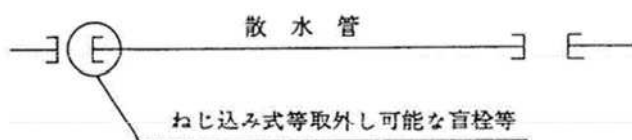 散水管
ねじ込み式等取外し可能な盲栓等